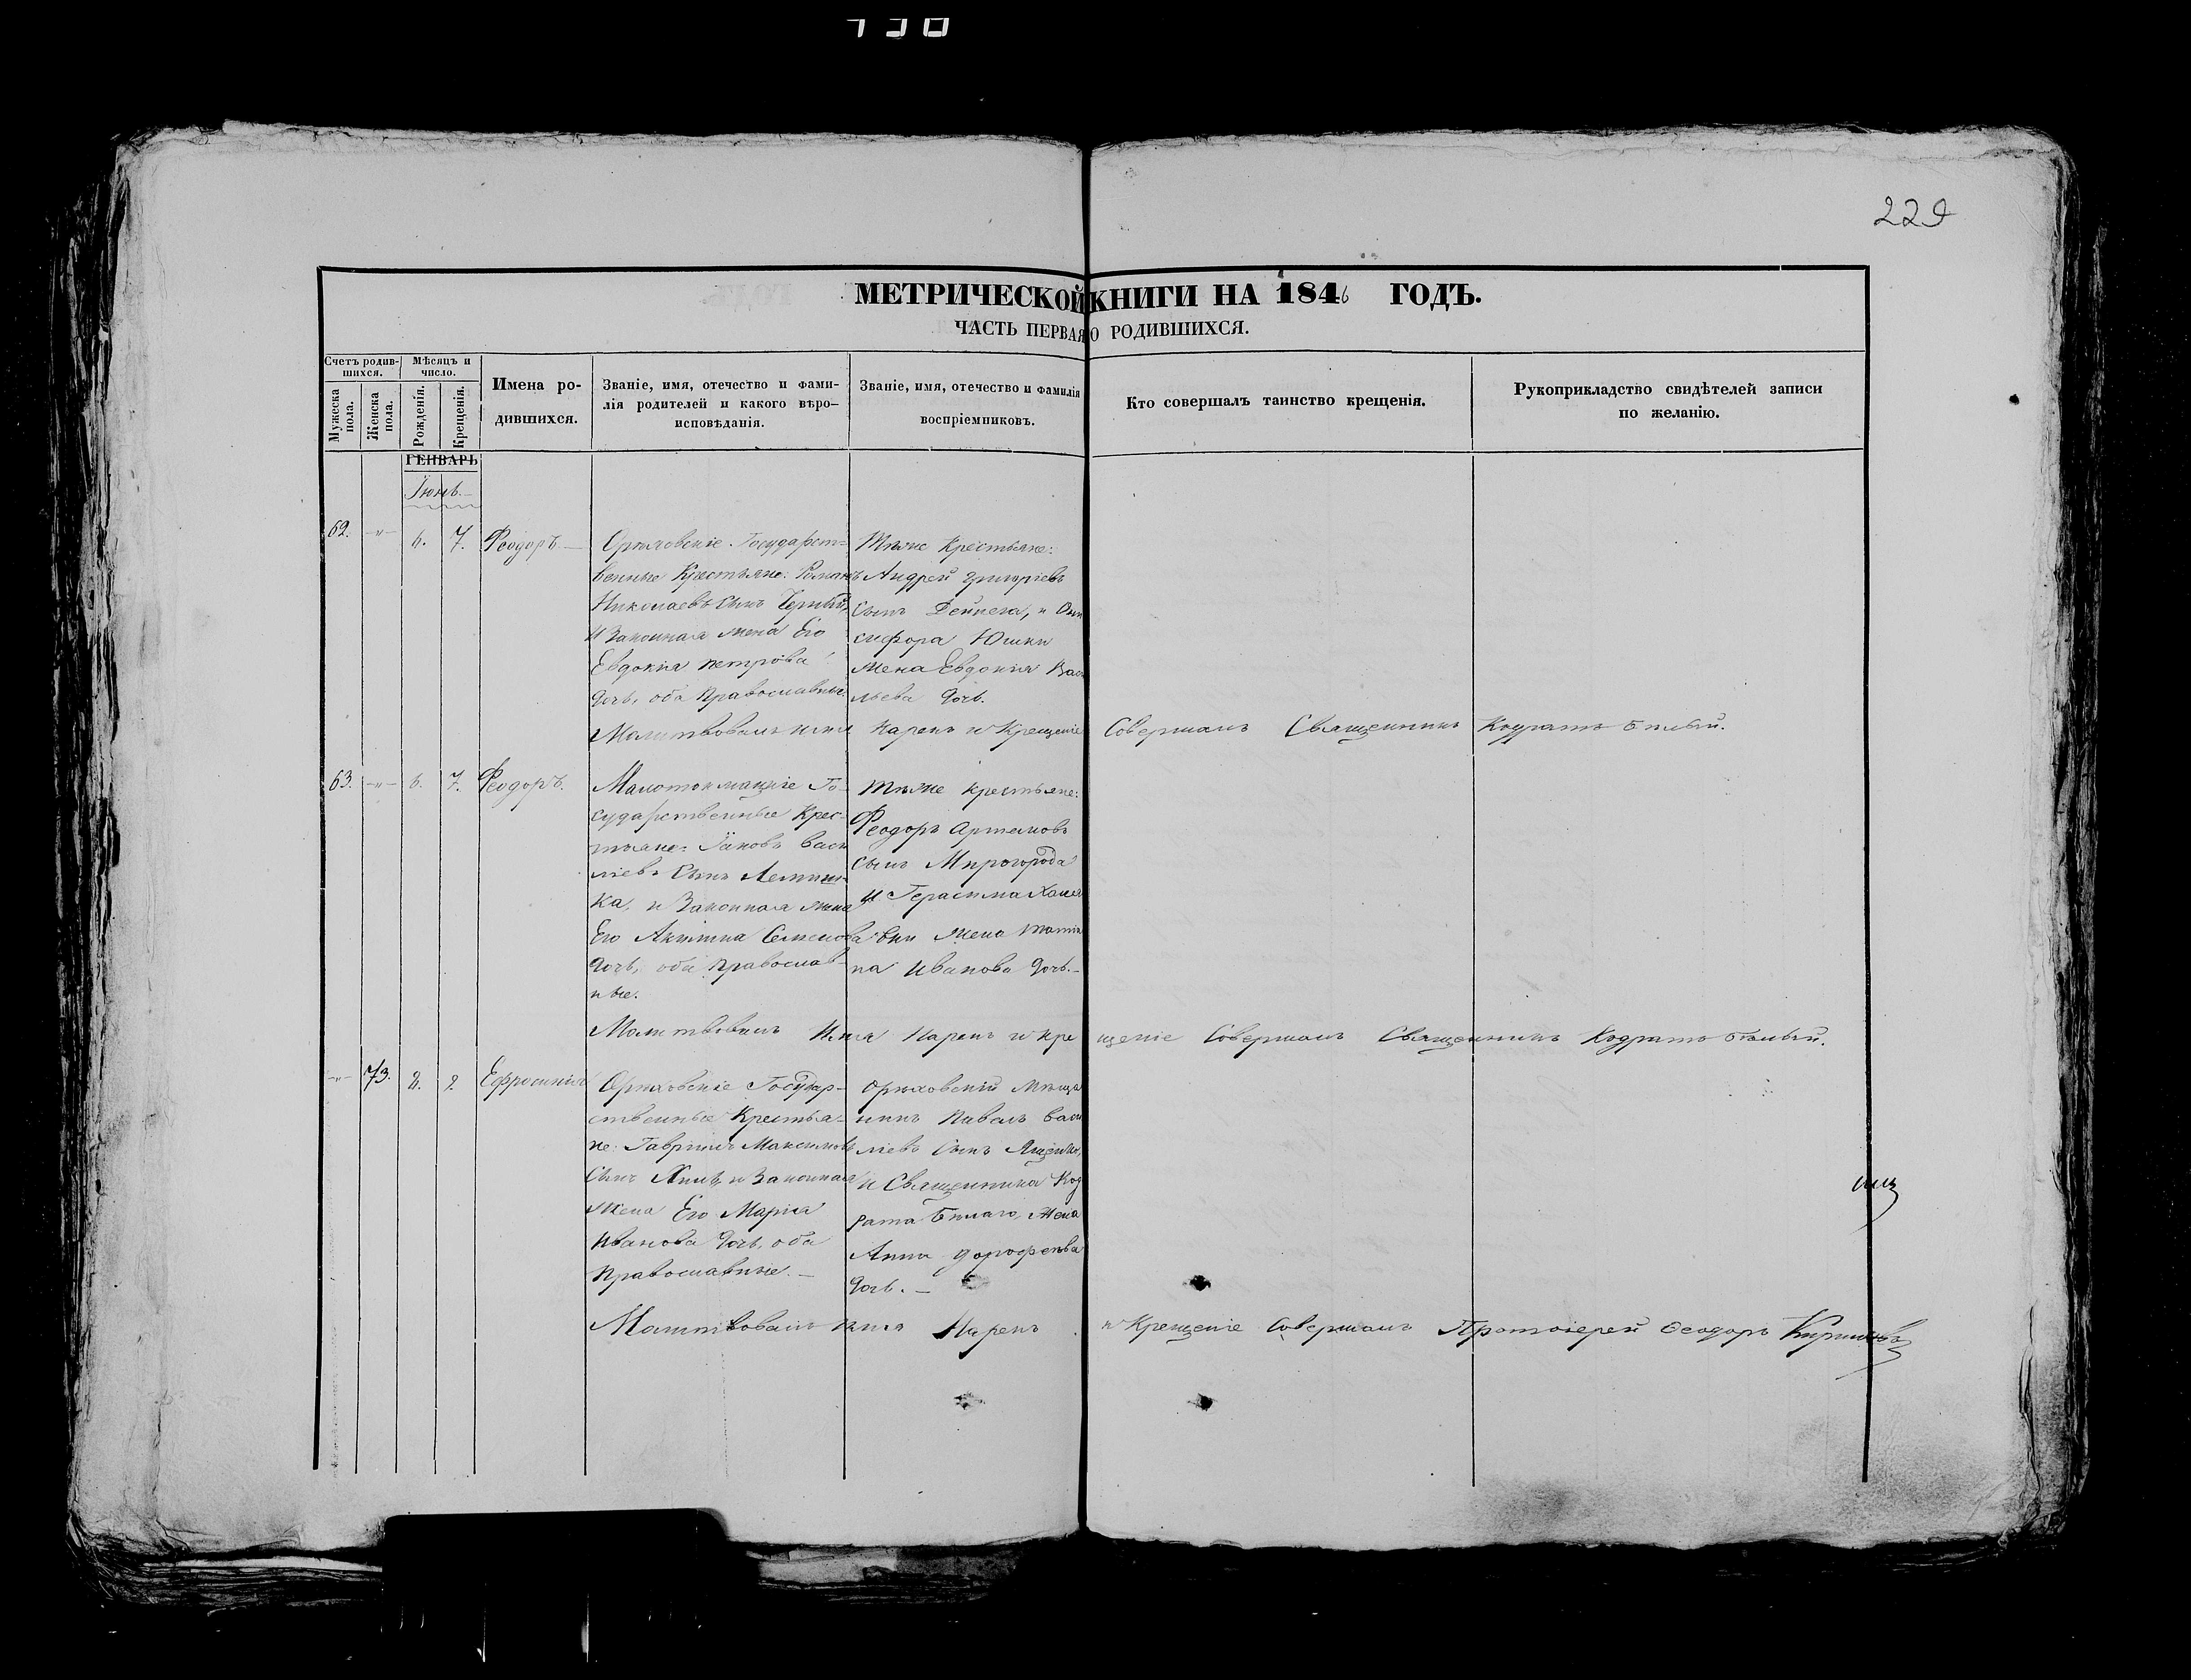 229
МЕТРИЧЕСКОЙ КНИГИ НА 1846 ГОДЪ.
ЧАСТЬ ПЕРВАЯ О РОДИВШИХСЯ.
Счетъ родив-
шихся.
Мужеска пола.
Женска пола.
Мѣсяцъ и
число.
Рожденія.
Крещенія.
Имена ро-
дившихся.
Званіе, имя, отечество и фами-
лія родителей и какого вѣро-
исповѣданія.
Званіе, имя, отечество и фамилія
воспріемниковъ.
Кто совершалъ таинство крещенія.
Рукоприкладство свидѣтелей записи
по желанію.
ГЕНВАРЬ
Іюнь.
62. -"- 6. 7. Феодоръ
Орѣховскіе Государст=
венные Крестьяне: Романъ
Николаевъ сынъ
и Законная жена Его
Евдокія петрова
дочь, оба православные.
Тѣже Крестьяне:
Андрей Григоріевъ
сынъ Дейнега, и Они
сифора Юшки
жена Евдокія Васи
льева дочь.
Молитвовалъ имя нарекъ и Крещеніе Совершалъ Священникъ Кодратъ Бѣлый.
63. -"- 6. 7. Феодоръ.
Малотокмацкіе Го-
сударственные Крес-
тьяне: Іаковъ васи
ліевъ Сынъ
ка, и Законная жена
Его Акилина Семенова
дочь, оба православ-
ные.
Тѣже крестьяне:
Феодоръ Артемовъ
сынъ Миргорода
и Герасима
жена Татія
на Иванова дочь.
Молитвовалъ Имя Нарекъ и кре щеніе Совершалъ Священникъ Кодратъ Бѣлый.
-"- 73. 2. 2. Ефросинія
Орѣховскіе Государ-
ственные Крестья-
не: Гавріилъ Максимовъ
сынъ и Законная
жена Его Марія
Иванова дочь, оба
Православные.
Орѣховскій мѣща
нинъ Павелъ Васи
ліевъ сынъ Ященко,
и Священника Код
рата Бѣлаго, жена
Анна дорофеева
дочь.
Молитвовалъ имя Нарекъ и Крещеніе Совершалъ Протоіерей Ѳеодоръ Кириловъ